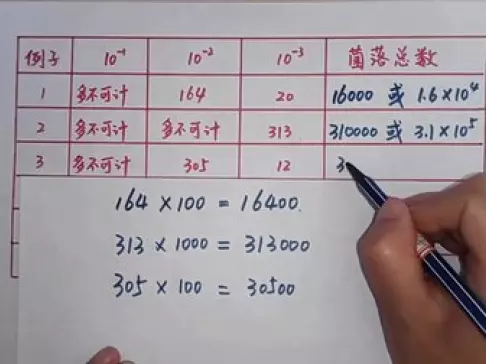 例子 10⁻¹ 10⁻² 10⁻³ 菌落总数
1 多不可计 164 20 16000 或 1.6×10⁴
2 多不可计 多不可计 313 310000 或 3.1×10⁵
3 多不可计 305 12 3
164 × 100 = 16400.
313 × 1000 = 313000
305 × 100 = 30500